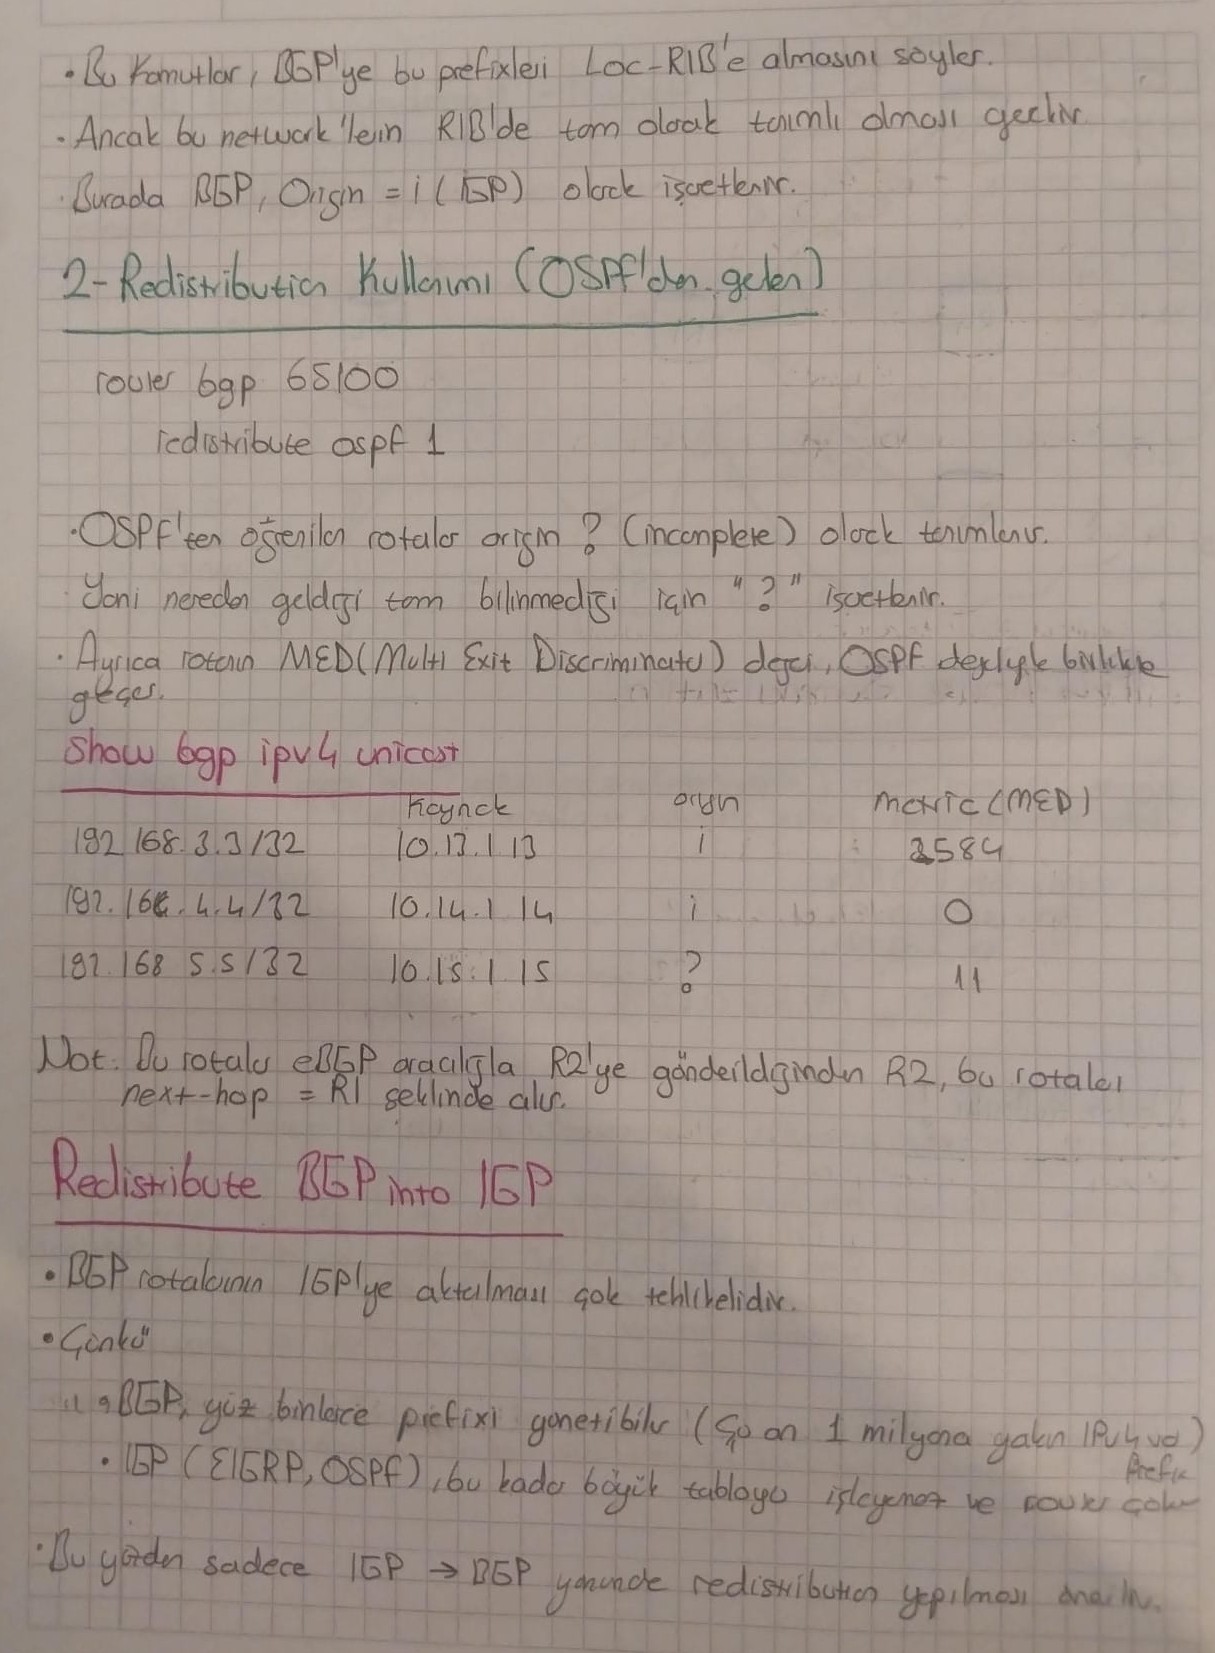 • Bu Komutlar, BGP'ye bu prefixleri Loc-RIB'e almasını söyler.
• Ancak bu network'lerin RIB'de tam olarak tanımlı olması gerekir.
• Burada BGP, Origin = i (IGP) olarak işaretlenir.
2- Redistribution Kullanımı (OSPF'den gelen)
router bgp 65100
redistribute ospf 1
• OSPF'ten öğrenilen rotalar origin ? (incomplete) olarak tanımlanır.
Yani nereden geldiği tam bilinmediği için "?" işaretlenir.
• Ayrıca rotanın MED (Multi Exit Discriminator) değeri, OSPF değeriyle birlikte
geçer.
Show bgp ipv4 unicast
Kaynak origin metric (MED)
192.168.3.3/32 10.13.1.13 i 3584
192.168.4.4/32 10.14.1.14 i 0
192.168.5.5/32 10.15.1.15 ? 11
Not: Bu rotalar eBGP aracılığıyla R2'ye gönderildiğinden R2, bu rotaları
next-hop = R1 şeklinde alır.
Redistribute BGP into IGP
• BGP rotalarının IGP'ye aktarılması çok tehlikelidir.
• Çünkü
• BGP, yüz binlerce prefixi yönetebilir (Şu an 1 milyona yakın IPv4 var)
Prefix
• IGP (EIGRP, OSPF), bu kadar büyük tabloyu işleyemez ve router çöker
• Bu yüzden sadece IGP → BGP yönünde redistribution yapılması önerilir.